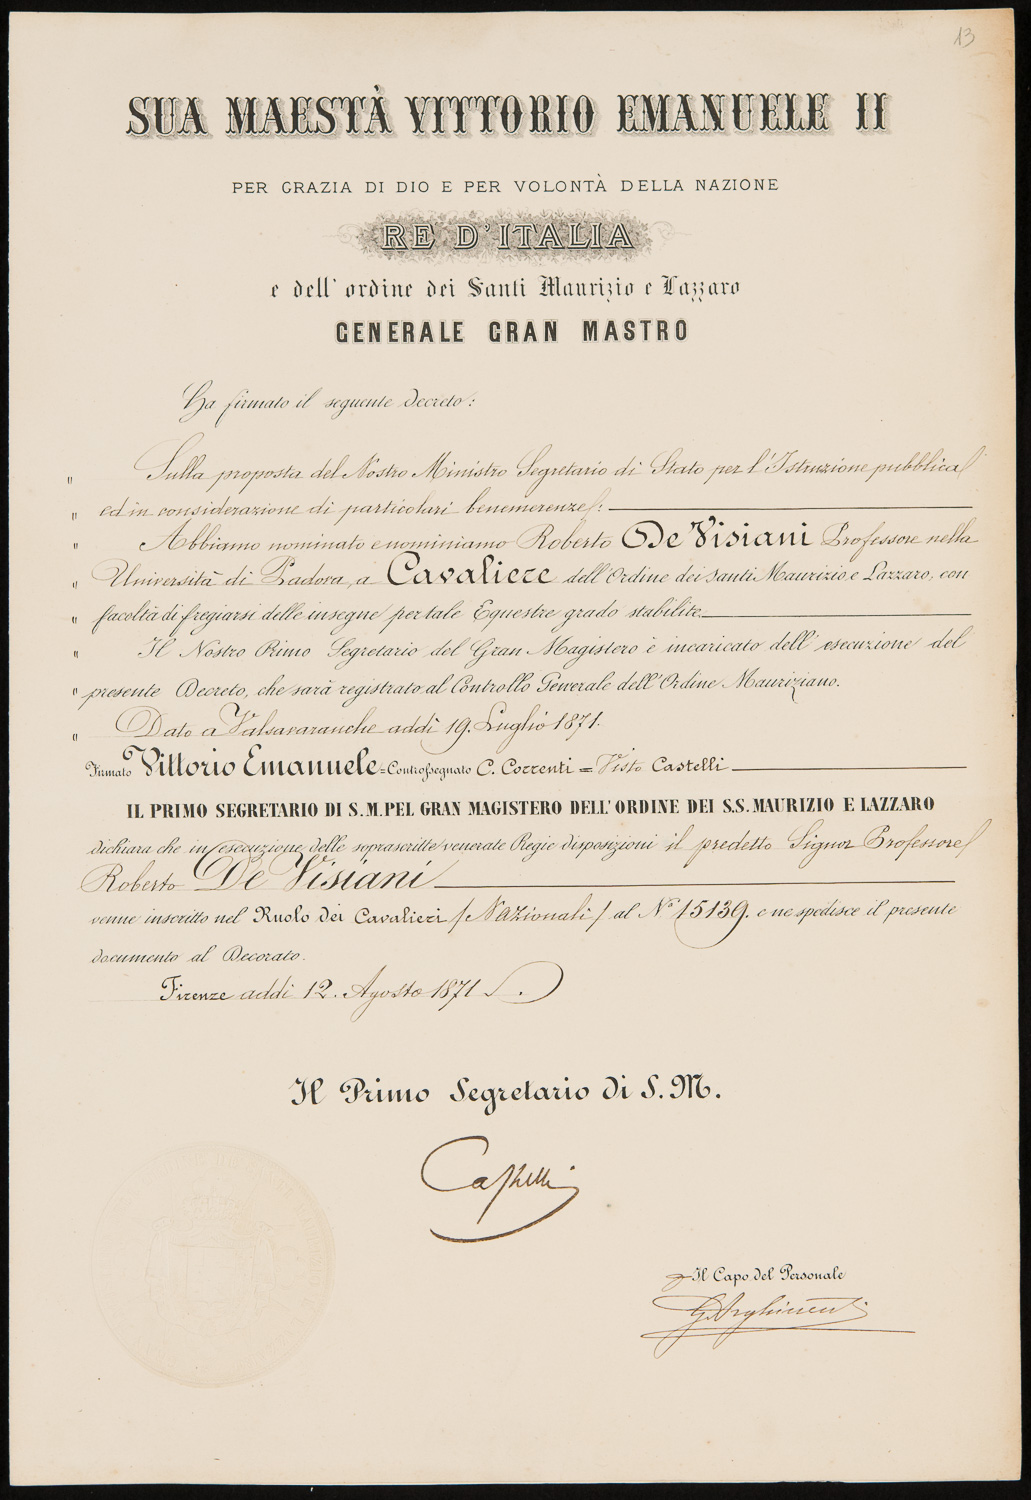 13
SUA MAESTÀ VITTORIO EMANUELE II
PER GRAZIA DI DIO E PER VOLONTÀ DELLA NAZIONE
RE D'ITALIA
e dell' ordine dei Santi Maurizio e Lazzaro
GENERALE GRAN MASTRO
Ha firmato il seguente decreto:
" Sulla proposta del Nostro Ministro Segretario di Stato per l'Istruzione pubblica
" ed in considerazione di particolari benemerenze:
" Abbiamo nominato e nominiamo Roberto De Visiani Professore nella
" Università di Padova, a Cavaliere dell'Ordine dei Santi Maurizio e Lazzaro, con
" facoltà di fregiarsi delle insegne per tale Equestre grado stabilite.
" Il Nostro Primo Segretario del Gran Magistero è incaricato dell' esecuzione del
" presente Decreto, che sarà registrato al Controllo Generale dell'Ordine Mauriziano.
" Dato a Valsavaranche addì 19. Luglio 1871.
Firmato Vittorio Emanuele = Controssegnato C. Correnti = Visto Castelli
IL PRIMO SEGRETARIO DI S. M. PEL GRAN MAGISTERO DELL' ORDINE DEI S.S. MAURIZIO E LAZZARO
dichiara che in esecuzione delle soprascritte venerate Regie disposizioni il predetto Signor Professore
Roberto De Visiani
venne inscritto nel Ruolo dei Cavalieri (Nazionali) al N° 15139. e ne spedisce il presente
documento al Decorato.
Firenze addì 12. Agosto 1871.
Il Primo Segretario di S. M.
Castelli
Il Capo del Personale